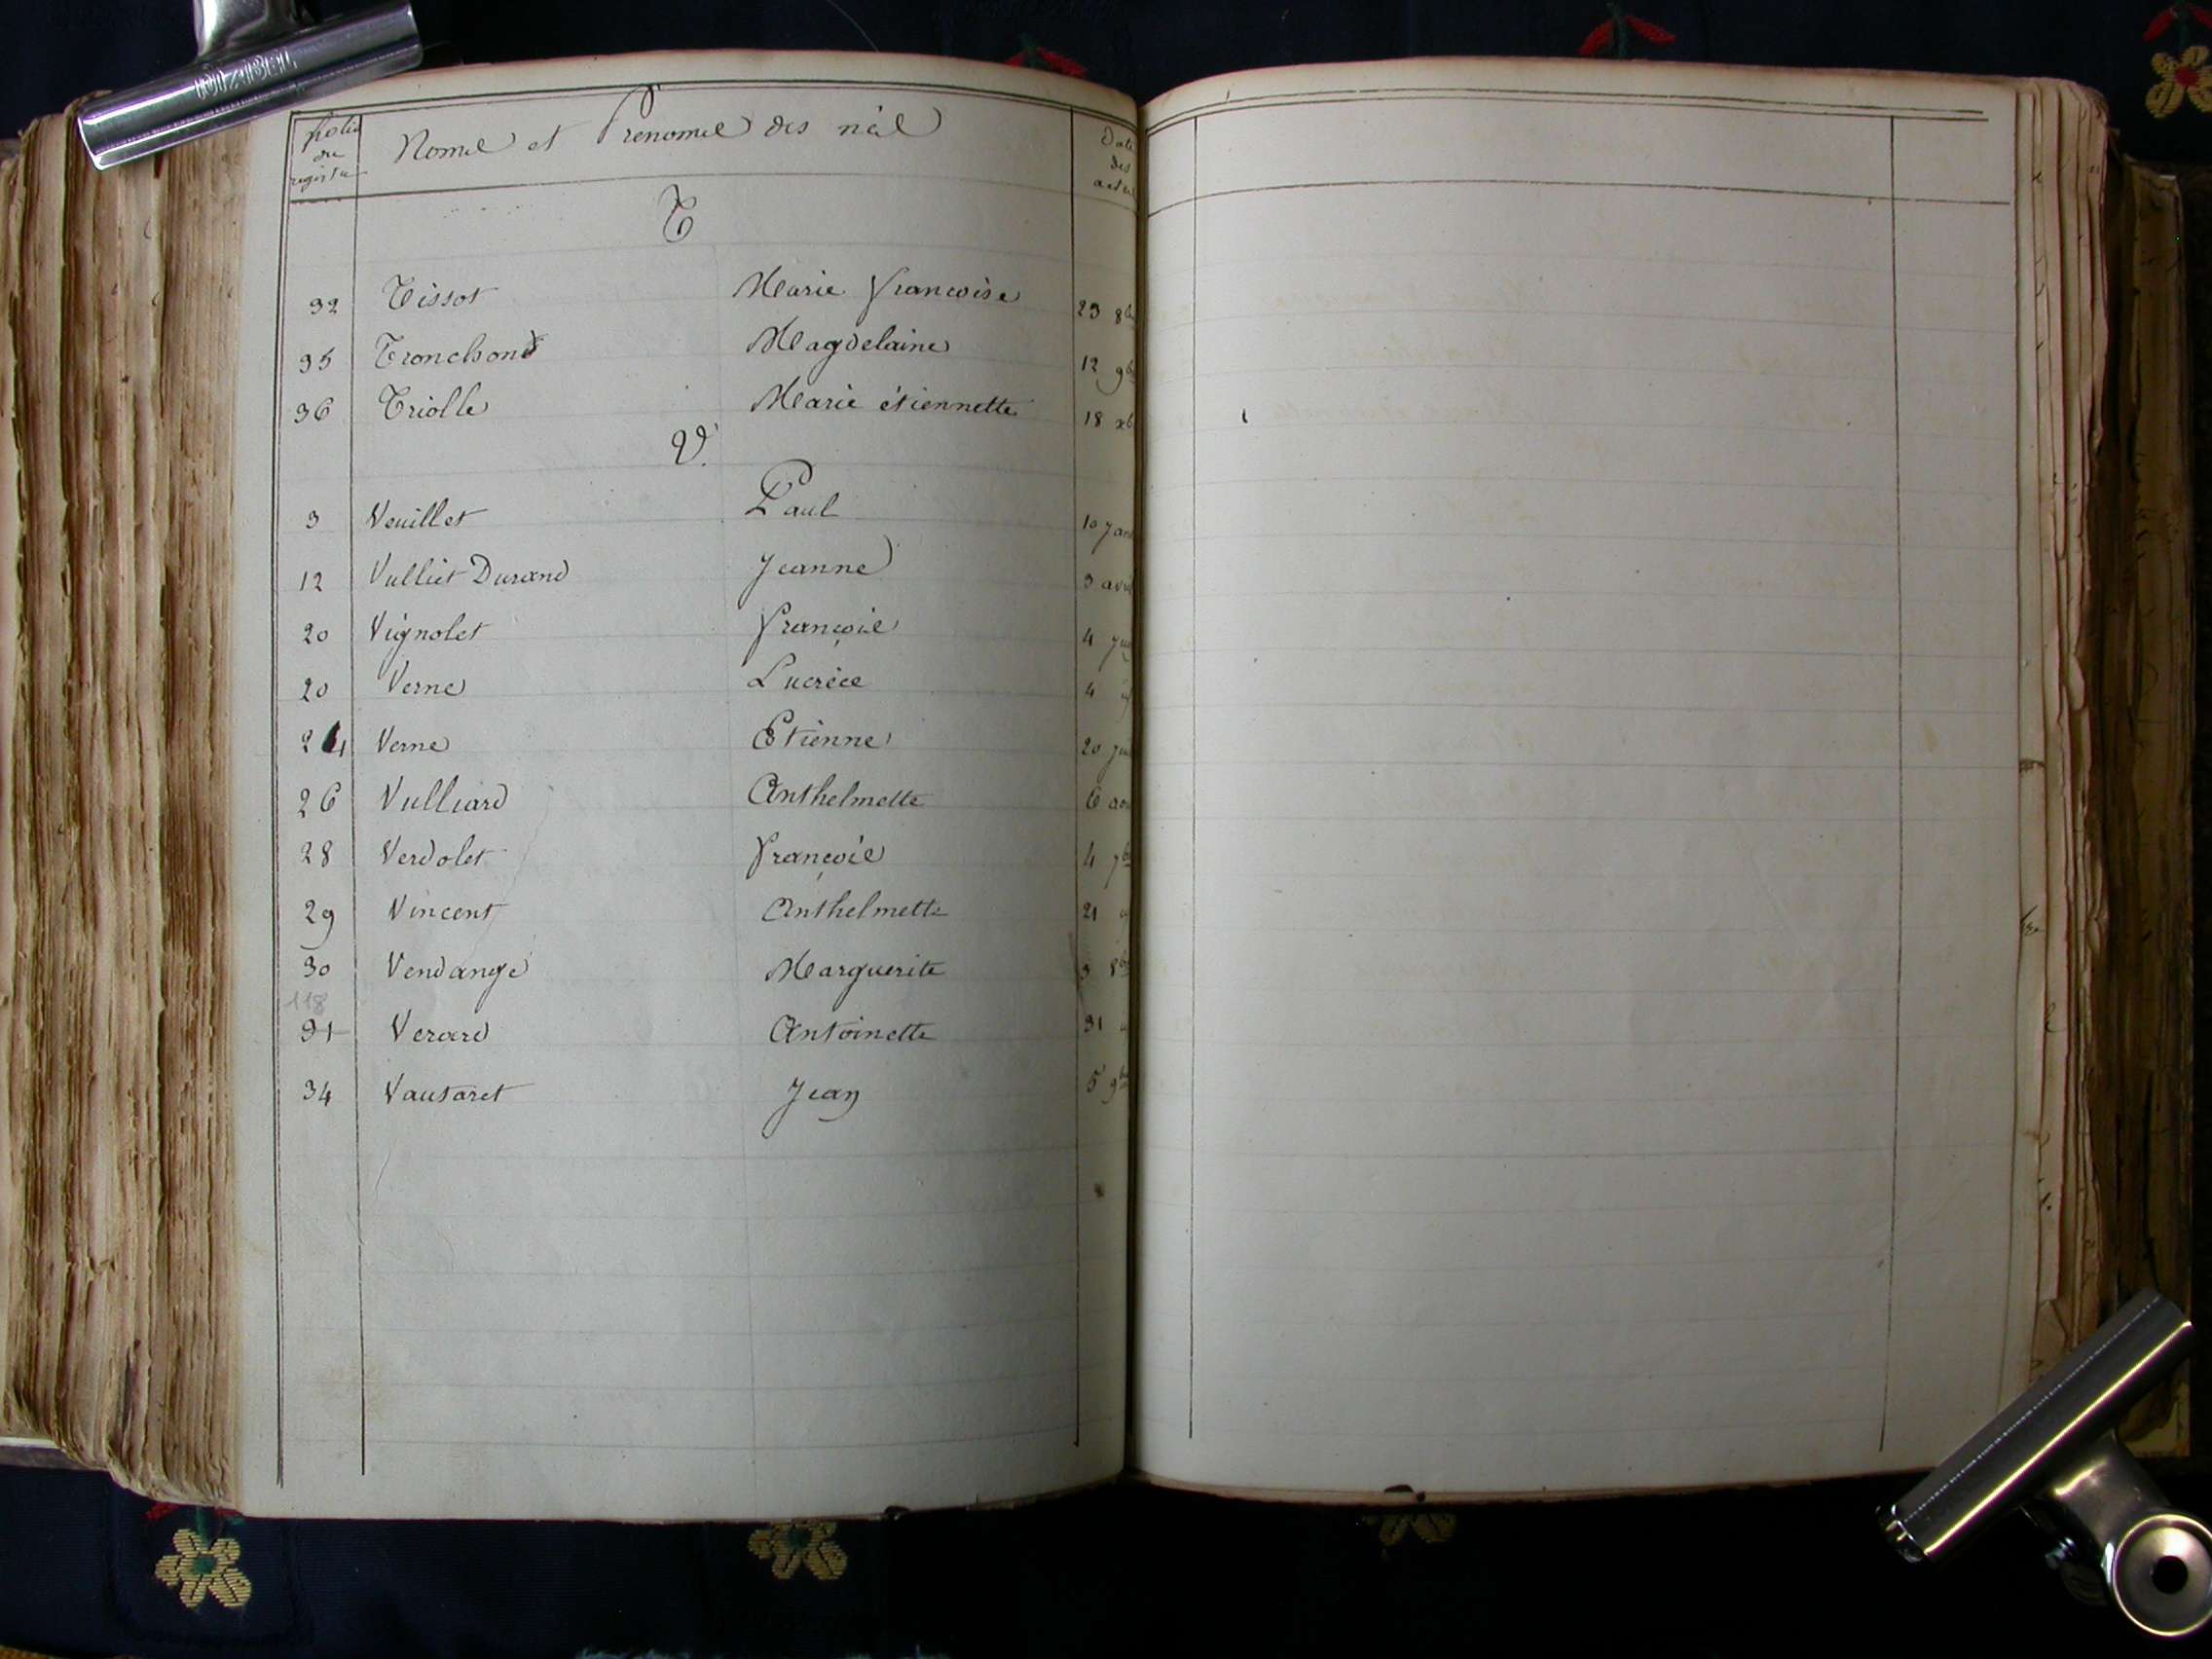 folio du registre Noms et Prenoms des nés Date des actes
T
32 Tissot Marie Francoise 23 8bre
35 Tronchond Magdelaine 12 9bre
36 Triolle Marie étiennette 18 xb
V.
3 Veuillet Paul 10 Janv
12 Vulliet Durand Jeanne 3 avril
20 Vignolet François 4
20 Verne Lucrèce 4 id
24 Verne Etienne 20
26 Vulliard Anthelmette 6 aou
28 Verdolet François 4 7bre
29 Vincent Anthelmette 21 id
30 Vendange Marguerite 3 8bre
118
31 Verard Antoinette 31 id
34 Vautaret Jean 5 9bre